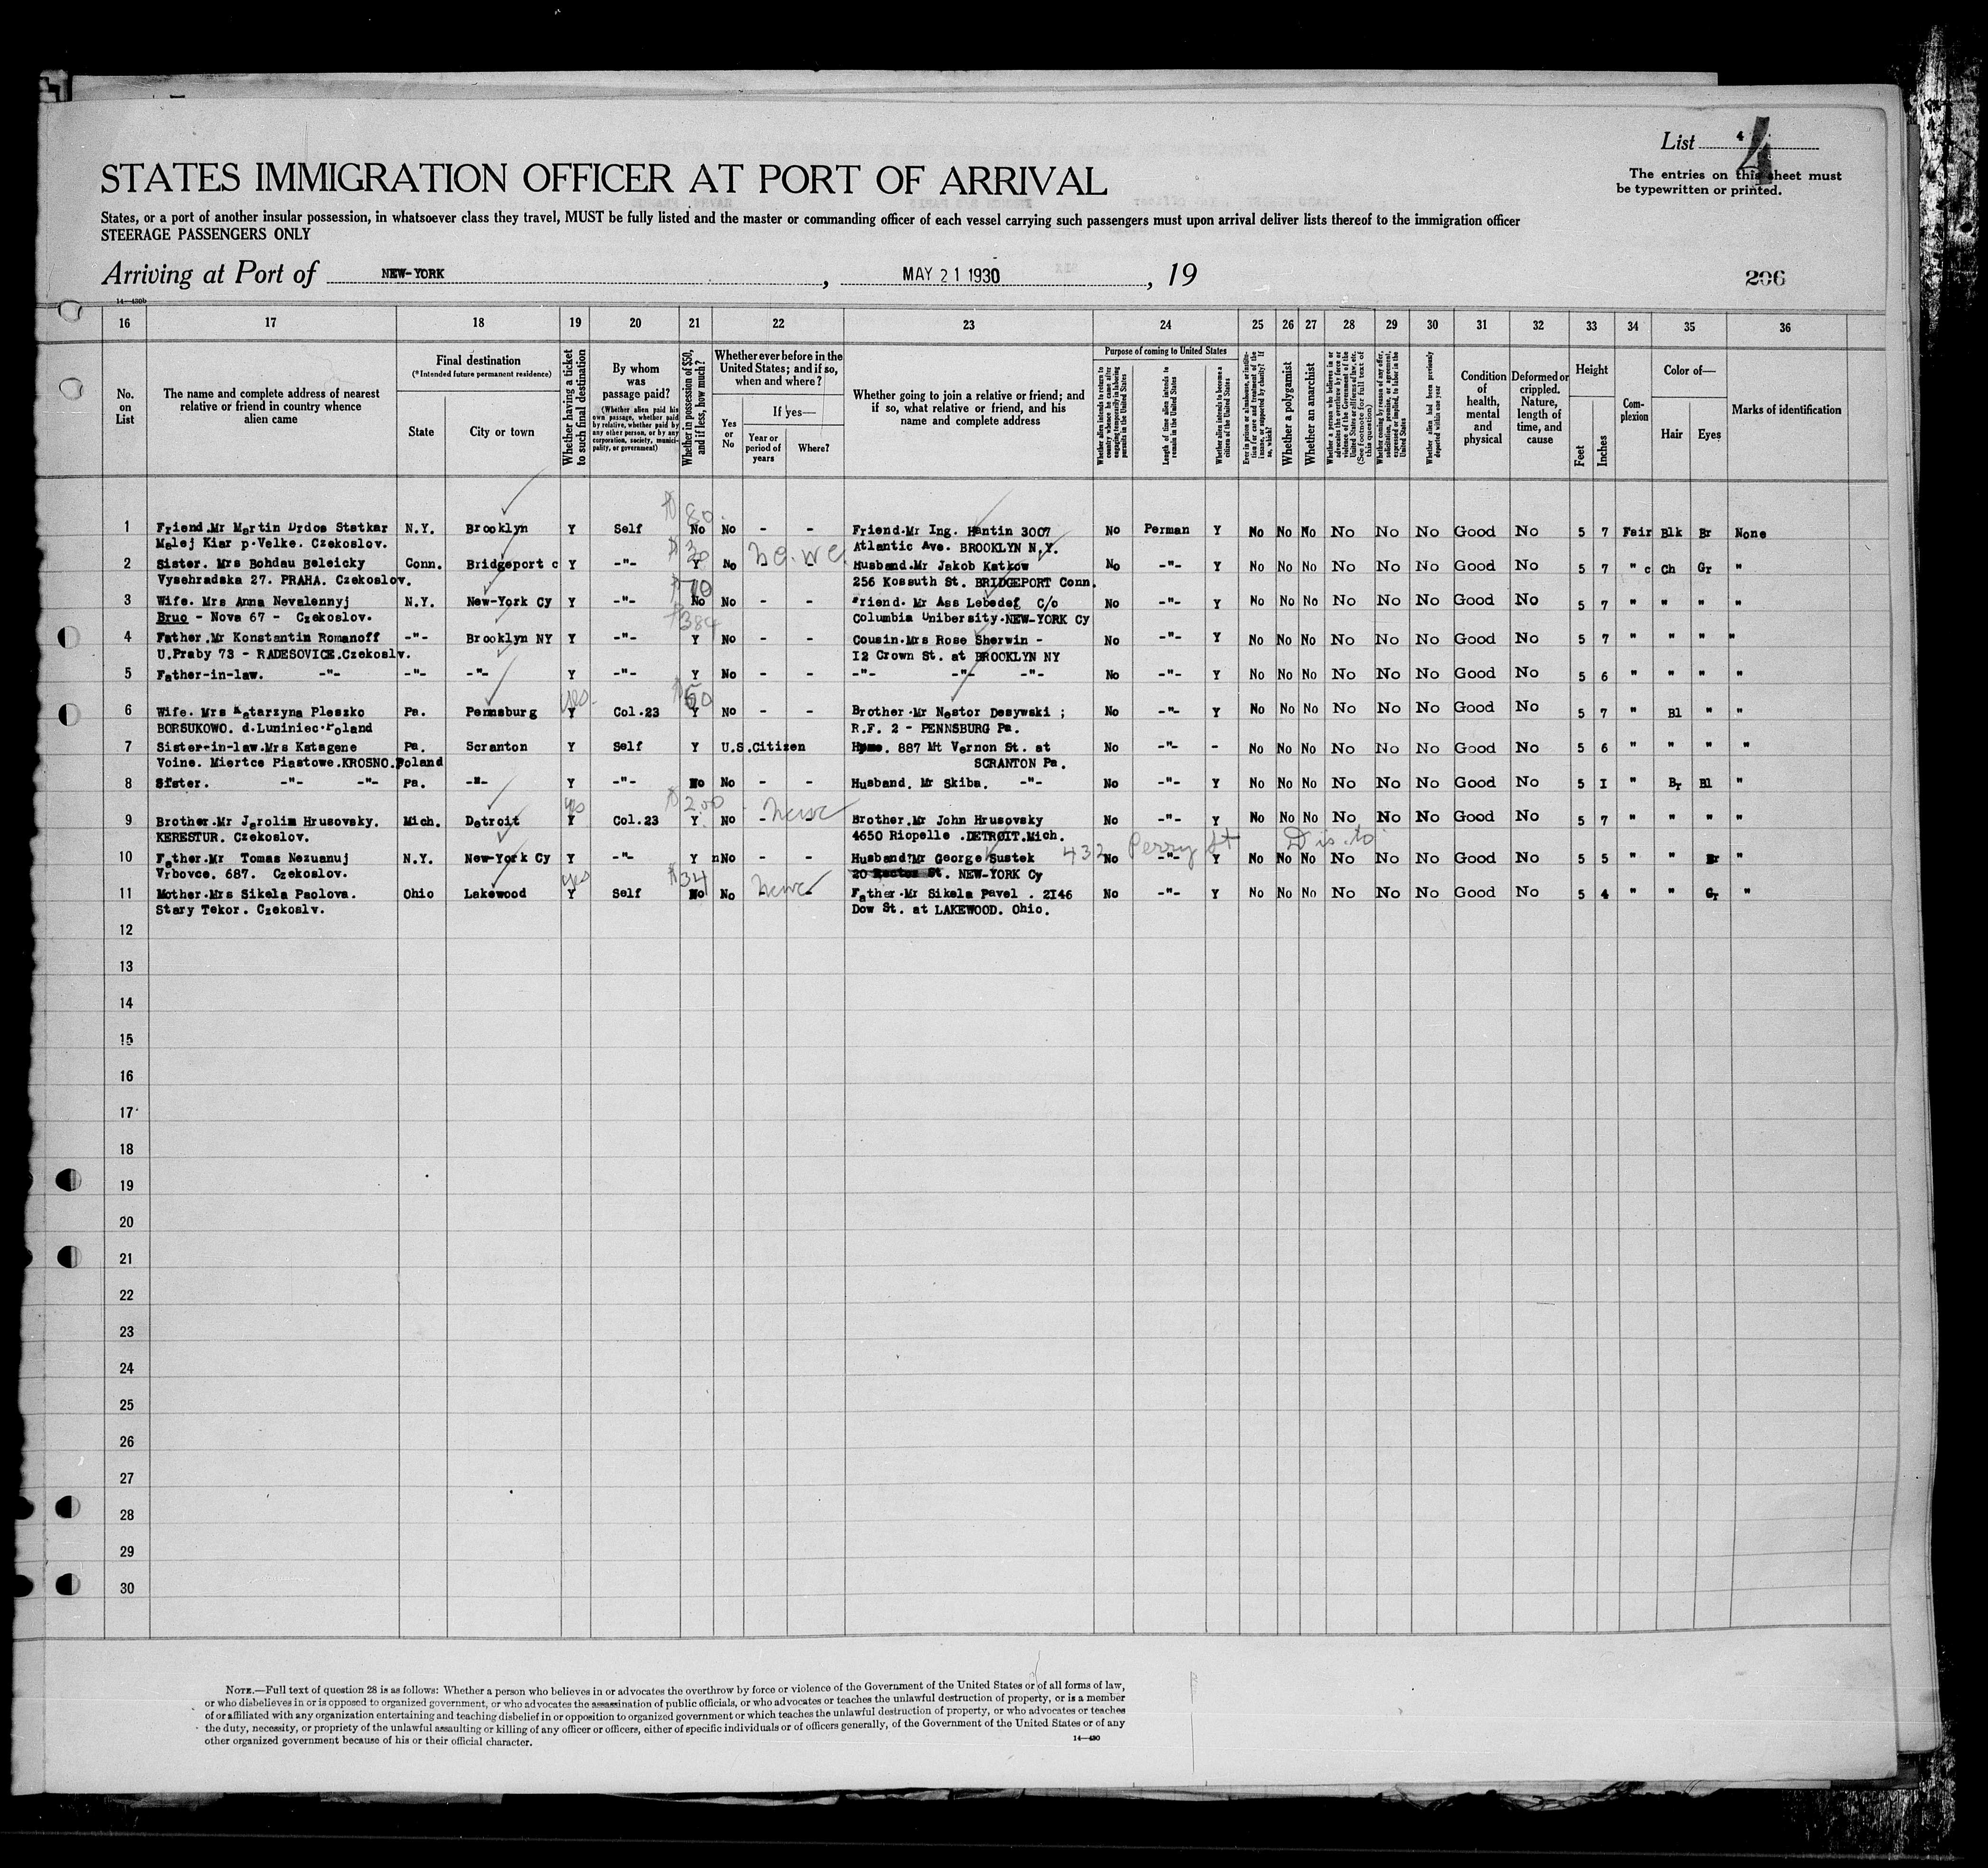 List 4 4
The entries on this sheet must
be typewritten or printed.
STATES IMMIGRATION OFFICER AT PORT OF ARRIVAL
States, or a port of another insular possession, in whatsoever class they travel, MUST be fully listed and the master or commanding officer of each vessel carrying such passengers must upon arrival deliver lists thereof to the immigration officer
STEERAGE PASSENGERS ONLY
Arriving at Port of NEW-YORK, MAY 21 1930, 19 206
14—430b
16 17 18 19 20 21 22 23 24 25 26 27 28 29 30 31 32 33 34 35 36
No. on List
The name and complete address of nearest relative or friend in country whence alien came
Final destination
(*Intended future permanent residence)
State
City or town
Whether having a ticket to such final destination
By whom was passage paid?
(Whether alien paid his own passage, whether paid by relative, whether paid by any other person, or by any corporation, society, municipality, or government)
Whether in possession of $50, and if less, how much?
Whether ever before in the United States; and if so, when and where?
Yes or No
If yes—
Year or period of years
Where?
Whether going to join a relative or friend; and if so, what relative or friend, and his name and complete address
Purpose of coming to United States
Whether alien intends to return to country whence he came after engaging temporarily in laboring pursuits in the United States
Length of time alien intends to remain in the United States
Whether alien intends to become a citizen of the United States
Ever in prison or almshouse, or institution for care and treatment of the insane, or supported by charity? If so, which?
Whether a polygamist
Whether an anarchist
Whether a person who believes in or advocates the overthrow by force or violence of the Government of the United States or all forms of law, etc. (See footnote for full text of this question)
Whether coming by reason of any offer, solicitation, promise, or agreement, expressed or implied, to labor in the United States
Whether alien had been previously deported within one year
Condition of health, mental and physical
Deformed or crippled. Nature, length of time, and cause
Height
Feet
Inches
Complexion
Color of—
Hair
Eyes
Marks of identification
$ 80
1 Friend.Mr Martin Drdos Statkar N.Y. Brooklyn Y Self No No - - Friend.Mr Ing. Hantin 3007 No Perman Y No No No No No No Good No 5 7 Fair Blk Br None
Malej Kiar p.Velke. Czekoslov. Atlantic Ave. BROOKLYN N.Y.
$ 30
2 Sister. Mrs Bohdau Beleicky Conn. Bridgeport c Y -"- Y No Husband.Mr Jakob Katkow No -"- Y No No No No No No Good No 5 7 " c Ch Gr "
Vysehradska 27. PRAHA. Czekoslov. 256 Kossuth St. BRIDGEPORT Conn.
$ 70
3 Wife. Mrs Anna Nevalennyj N.Y. New-York Cy Y -"- No No - - Friend. Mr Ass Lebedef C/o No -"- Y No No No No No No Good No 5 7 " " " "
Bruo - Nova 67 - Czekoslov. Columbia Unibersity.NEW-YORK Cy
$384
4 Father.Mr Konstantin Romanoff -"- Brooklyn NY Y -"- Y No - - Cousin.Mrs Rose Sherwin - No -"- Y No No No No No No Good No 5 7 " " " "
U.Praby 73 - RADESOVICE.Czekoslv. I2 Crown St. at BROOKLYN NY
5 Father-in-law. -"- -"- -"- Y -"- Y No - - -"- -"- -"- No -"- Y No No No No No No Good No 5 6 " " " "
yes $ 60
6 Wife. Mrs Katarzyna Pleszko Pa. Pennsburg Y Col.23 Y No - - Brother.Mr Nestor Desywski ; No -"- Y No No No No No No Good No 5 7 " Bl " "
BORSUKOWO. d.Luminiec.Poland R.F. 2 - PENNSBURG Pa.
7 Sister-in-law.Mrs Katagene Pa. Scranton Y Self Y U.S.Citizen Home. 887 Mt Vernon St. at No -"- - No No No No No No Good No 5 6 " " " "
Voine. Miertce Piastowe.KROSNO.Poland SCRANTON Pa.
8 Sister. -"- -"- Pa. -"- Y -"- No No - - Husband. Mr Skiba. -"- No -"- Y No No No No No No Good No 5 I " Br Bl "
yes $ 200
9 Brother.Mr Jarolim Hrusovsky. Mich. Detroit Y Col.23 Y No - - Brother.Mr John Hrusovsky No -"- Y No No No No No No Good No 5 7 " " " "
KERESTUR. Czekoslov. 4650 Riopelle .DETROIT.Mich.
432 Perry St Dis. to
10 Father.Mr Tomas Nezuanuj N.Y. New-York Cy Y -"- Y nNo - - Husband?Mr George Sustek No -"- Y No No No No No No Good No 5 5 " " Br "
Vrbovce. 687. Czekoslov. 20 St. NEW-YORK Cy
yes $ 34
11 Mother.Mrs Sikela Paolova. Ohio Lakewood Y Self No No Father.Mr Sikela Pavel . 2I46 No -"- Y No No No No No No Good No 5 4 " " Gr "
Stary Tekor. Czekoslv. Dow St. at LAKEWOOD. Ohio.
12
13
14
15
16
17
18
19
20
21
22
23
24
25
26
27
28
29
30
NOTE.—Full text of question 28 is as follows: Whether a person who believes in or advocates the overthrow by force or violence of the Government of the United States or of all forms of law,
or who disbelieves in or is opposed to organized government, or who advocates the assassination of public officials, or who advocates or teaches the unlawful destruction of property, or is a member
of or affiliated with any organization entertaining and teaching disbelief in or opposition to organized government or which teaches the unlawful destruction of property, or who advocates or teaches
the duty, necessity, or propriety of the unlawful assaulting or killing of any officer or officers, either of specific individuals or of officers generally, of the Government of the United States or of any
other organized government because of his or their official character.
14—430